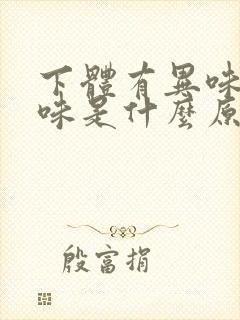 下體有異味
味是什麼原
殷富捐